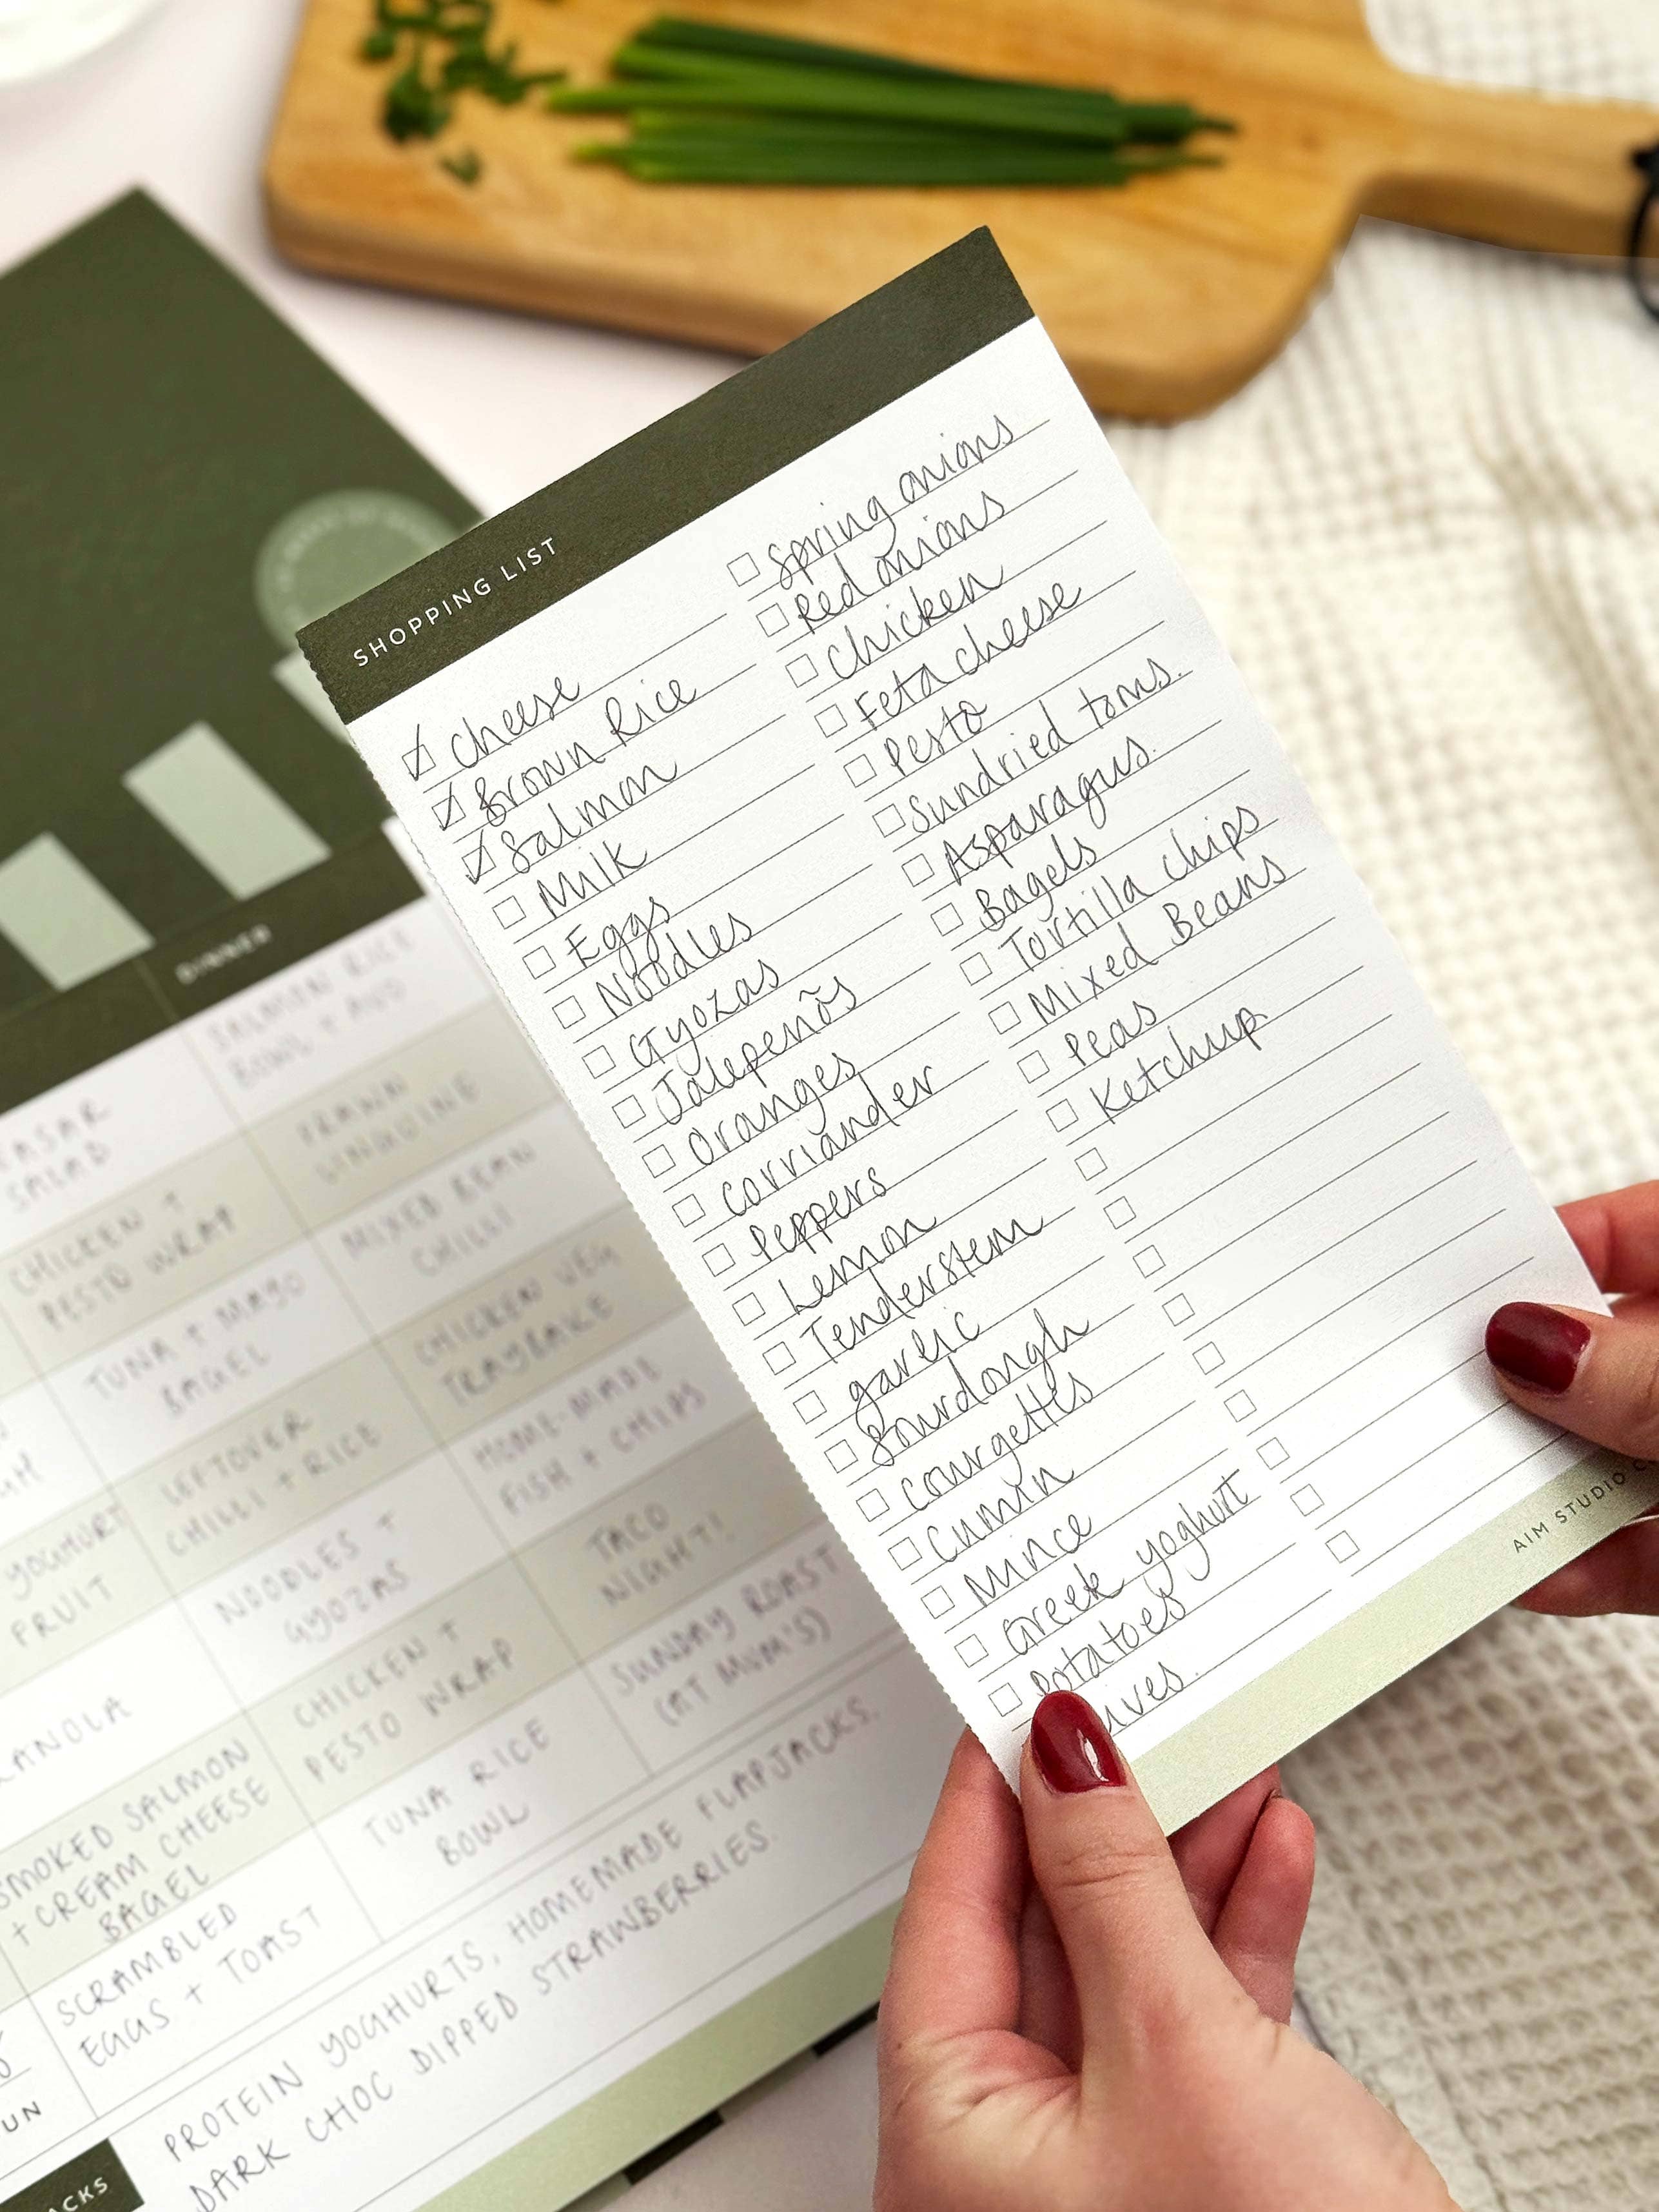 SHOPPING LIST
cheese
Brown Rice
Salmon
Milk
Eggs
Noodles
Gyozas
Jalepenõs
Oranges
Corriander
Peppers
Lemon
Tenderstem
garlic
Sourdough
Courgettes
Cumin
Mince
Greek yoghurt
Potatoes
Spring onions
Red onions
Chicken
Feta cheese
Pesto
Sundried toms.
Asparagus.
Bagels
Tortilla chips
Mixed Beans
Peas
Ketchup
AIM STUDIO
DINNER
SALMON RICE
BOWL +
SALAD
PRAWN
LINGUINE
CHICKEN +
PESTO WRAP
MIXED BEAN
CHILLI
TUNA + MAYO
BAGEL
CHICKEN VEG
TRAYBAKE
YOGHURT
FRUIT
LEFTOVER
CHILLI + RICE
HOME-MADE
FISH + CHIPS
NOODLES +
GYOZAS
TACO
NIGHT!
SMOKED SALMON
+ CREAM CHEESE
BAGEL
CHICKEN +
PESTO WRAP
SUNDAY ROAST
(AT MUM'S)
SCRAMBLED
EGGS + TOAST
TUNA RICE
BOWL
PROTEIN YOGHURTS, HOMEMADE FLAPJACKS.
DARK CHOC DIPPED STRAWBERRIES.